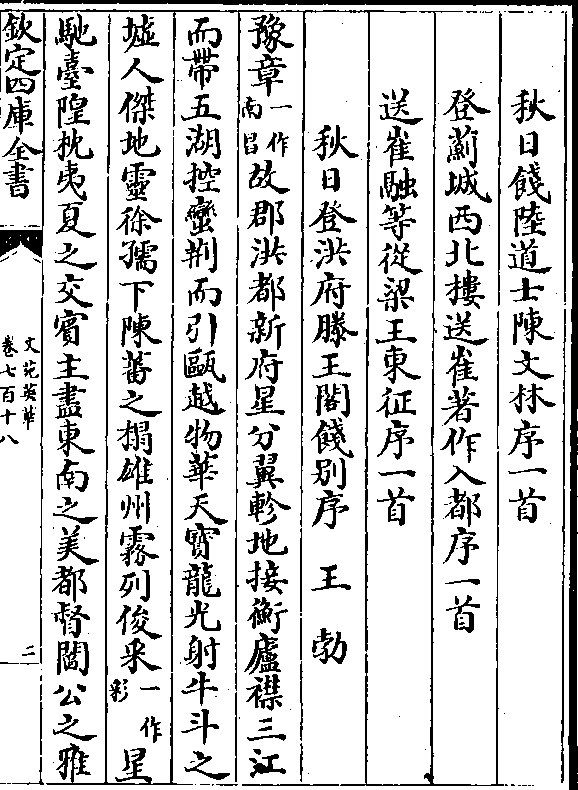 秋日餞陸道士陳文林序一首
登薊城西北樓送崔著作入都序一首
送崔融等從梁王東征序一首
秋日登洪府滕王閣餞别序　王勃
豫章一作南昌故郡洪都新府星分翼軫地接衡廬襟三江
而帶五湖控蠻荆而引甌越物華天寳龍光射牛斗之
墟人傑地靈徐孺下陳蕃之榻雄州霧列俊采一作彩星
馳臺隍枕夷夏之交賓主盡東南之美都督閻公之雅
欽定四庫全書
文苑英華
卷七百十八
二